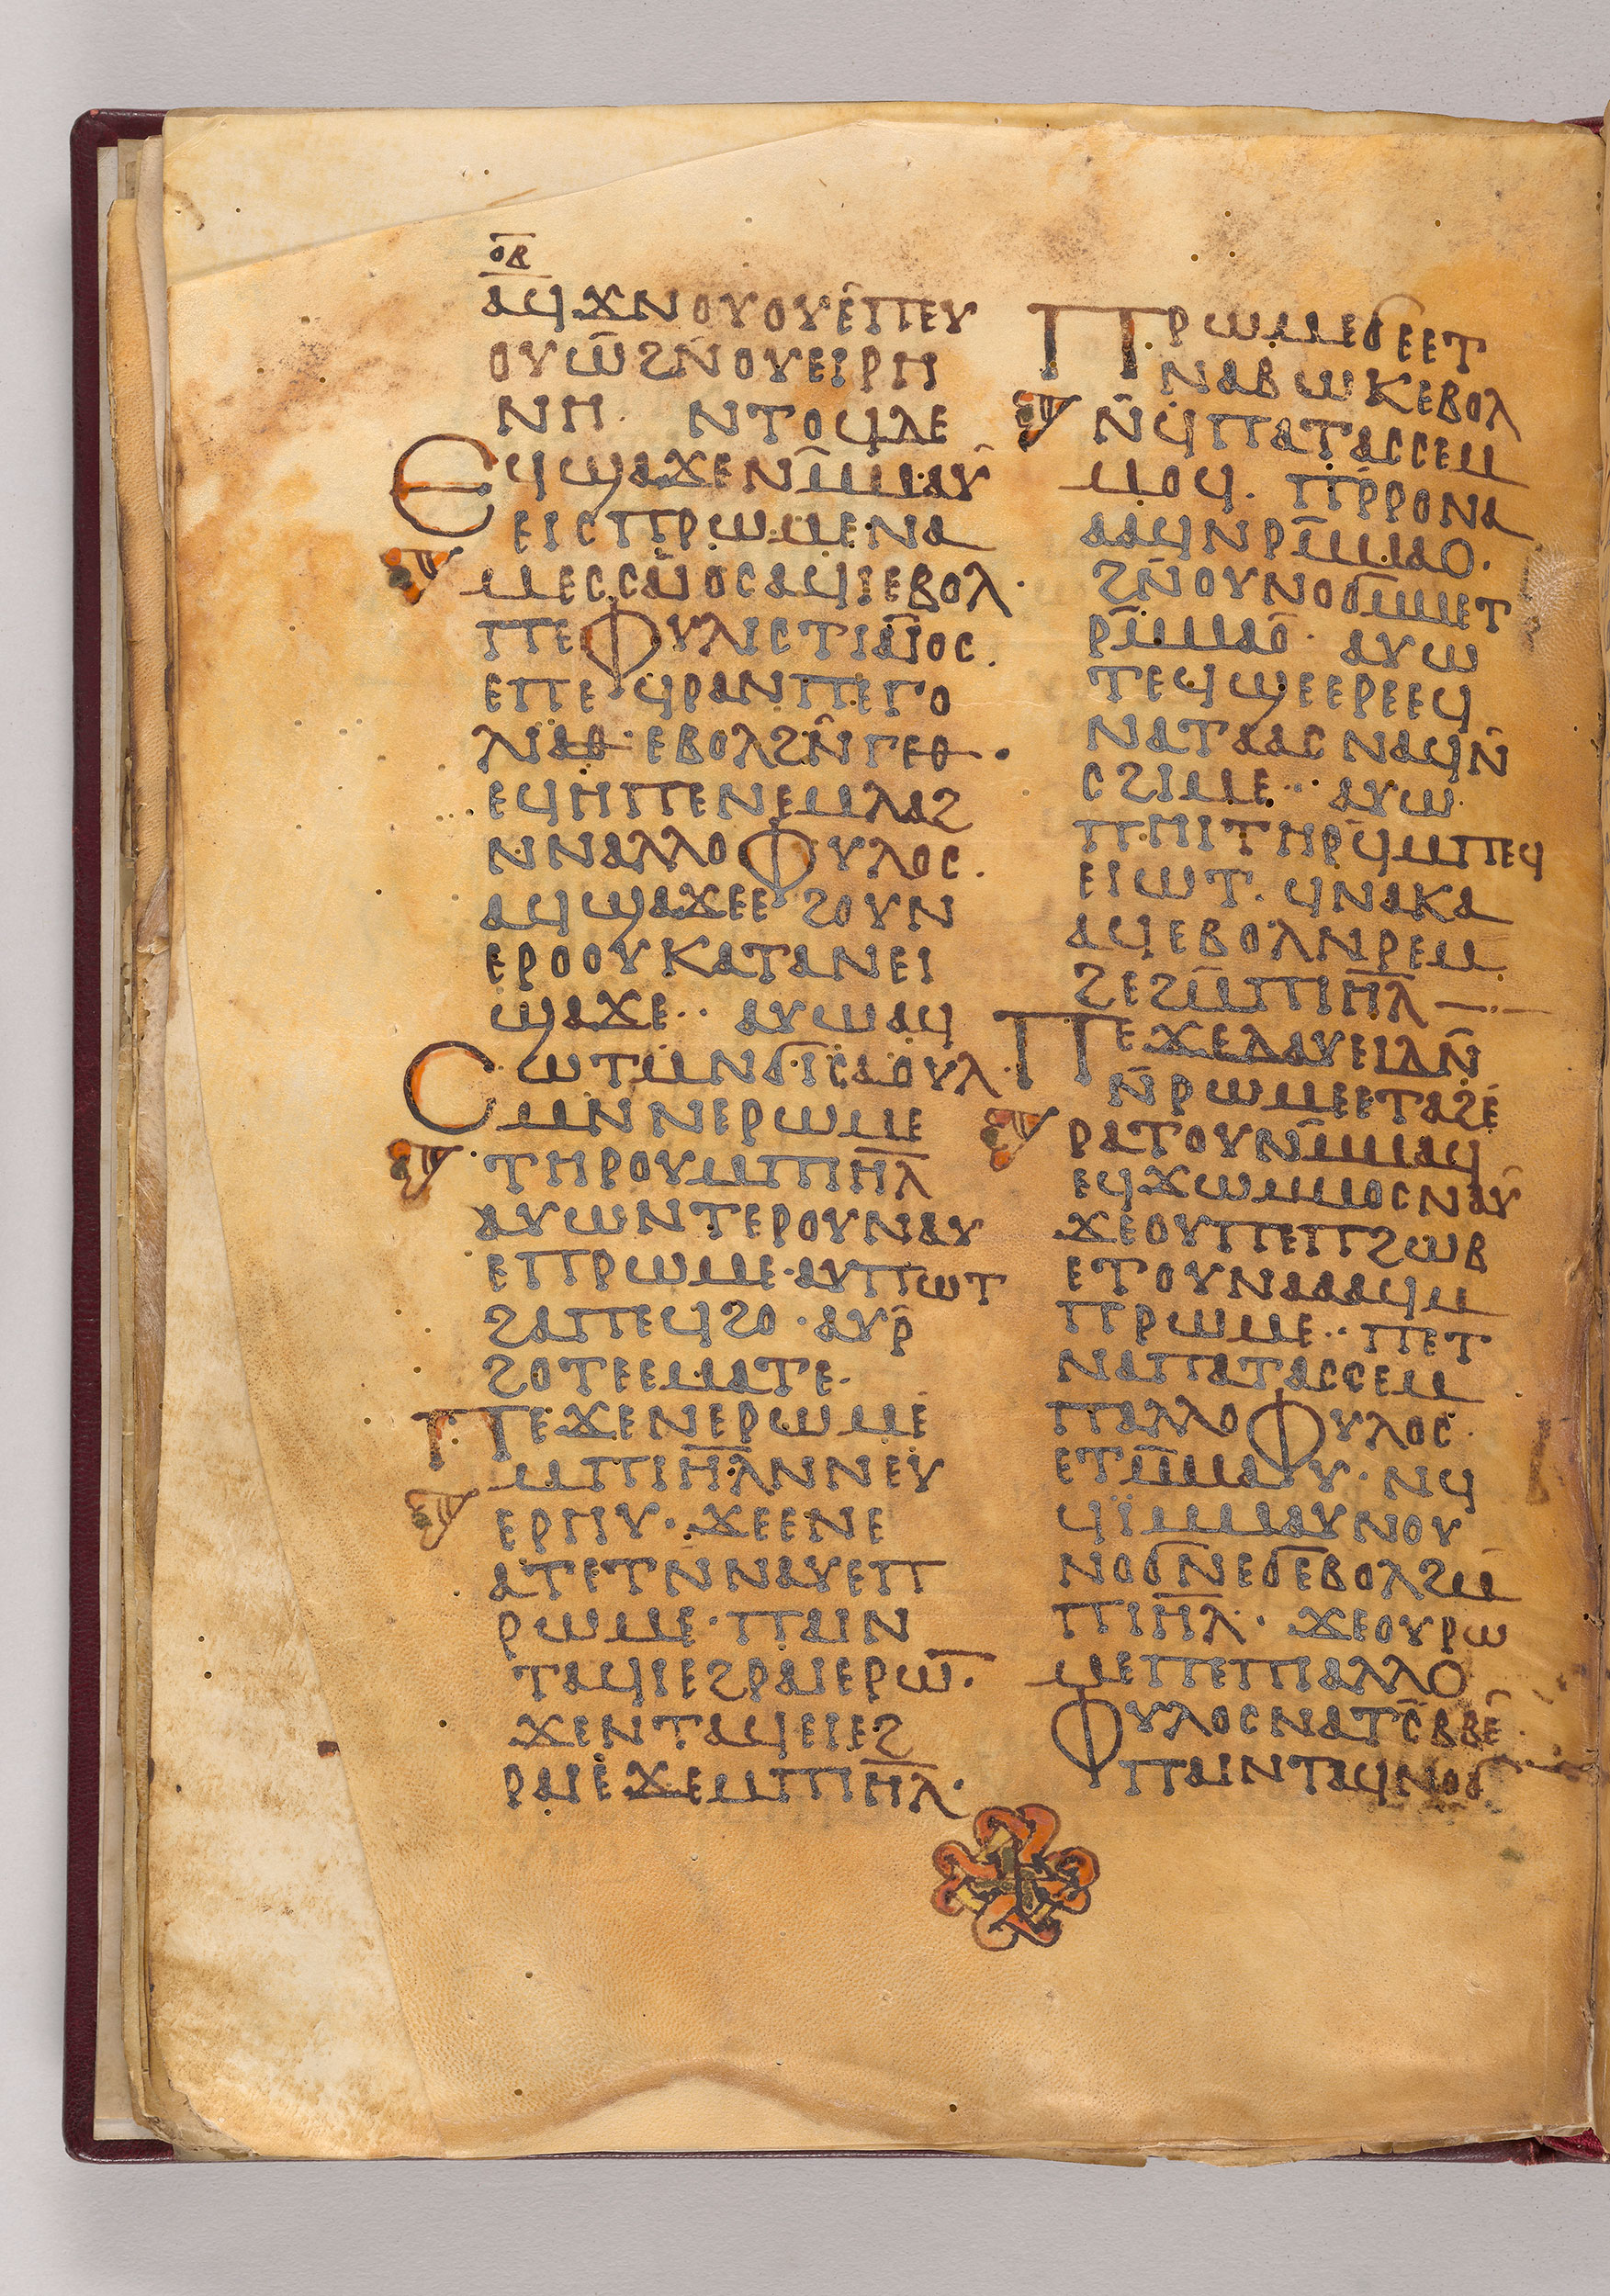 ⲟⲃ
ⲁϥϫⲛⲟⲩⲟⲩⲉ̄ⲡⲉⲩ
ⲟⲩⲱ̄ϩⲛ̄ⲟⲩⲉⲓⲣⲏ
ⲛⲏ. ⲛⲧⲟϥⲇⲉ
ⲉϥϣⲁϫⲉⲛⲙ̄ⲙⲁⲩ̄
ⲉⲓⲥⲡⲣⲱⲙⲉⲛⲁ
ⲙⲉⲥⲥⲁⲓ̈ⲟⲥⲁϥⲓⲉⲃⲟⲗ·
ⲡⲉⲫⲩⲗⲓⲥⲧⲓⲁⲓ̈ⲟⲥ.
ⲉⲡⲉϥⲣⲁⲛⲡⲉⲅⲟ
ⲗⲓⲁⲑ· ⲉⲃⲟⲗϩⲛ̄ⲅⲉⲑ·
ⲉϥⲏⲡⲉⲛⲉⲙⲗⲁϩ
ⲛⲛⲁⲗⲗⲟⲫⲩⲗⲟⲥ.
ⲁϥϣⲁϫⲉⲉϩⲟⲩⲛ
ⲉⲣⲟⲟⲩⲕⲁⲧⲁⲛⲉⲓ
ϣⲁϫⲉ·· ⲁⲩⲱⲁϥ
ⲥⲱⲧⲙⲛϭⲓⲥⲁⲟⲩⲗ·
ⲙⲛⲛⲉⲣⲱⲙⲉ
ⲧⲏⲣⲟⲩⲙⲡⲓⲏ̄ⲗ̄
ⲁⲩⲱⲛⲧⲉⲣⲟⲩⲛⲁⲩ
ⲉⲡⲣⲱⲙⲉ·ⲁⲩⲡⲱⲧ
ϩⲁⲡⲉϥϩⲟ·ⲁⲩⲣ̄
ϩⲟⲧⲉⲉⲙⲁⲧⲉ·
ⲡⲉϫⲉⲛⲉⲣⲱⲙⲉ
ⲙⲡⲓⲏ̄ⲗ̄ⲛⲛⲉⲩ
ⲉⲣⲏⲩ·ϫⲉⲉⲛⲉ
ⲁⲧⲉⲧⲛ̄ⲛⲁⲩⲉⲡ
ⲣⲱⲙⲉ·ⲡⲁⲓⲛ
ⲧⲁϥⲓⲉϩⲣⲁⲓⲉⲣⲱ̄·
ϫⲉⲛⲧⲁϥⲉⲓⲉϩ
ⲣⲁⲓⲉ̄ϫⲉⲙⲡⲓⲏ̄ⲗ̄·
ⲡⲣⲱⲙⲉϭⲉⲉⲧ
ⲛⲁⲃⲱⲕⲉⲃⲟⲗ
ⲛ̄ϥⲡⲁⲧⲁⲥⲥⲉⲙ
ⲙⲟϥ. ⲡⲣ̄ⲣⲟⲛⲁ
ⲁⲁϥⲛⲣⲙ̄ⲙⲁⲟ.
ϩⲛ̄ⲟⲩⲛⲟϭⲙⲙⲉⲧ
ⲣⲙ̄ⲙⲁⲟ̄· ⲁⲩⲱ
ⲧⲉϥϣⲉⲉⲣⲉⲉϥ
ⲛⲁⲧⲁⲁⲥⲛⲁϥⲛ̄
ⲥϩⲓⲙⲉ·· ⲁⲩⲱ
ⲡⲏⲓⲧⲏⲣϥ̄ⲙⲡⲉϥ
ⲉⲓⲱⲧ. ϥⲛⲁⲕⲁ
ⲁϥⲉⲃⲟⲗⲛⲣⲉⲙ
ϩⲉϩⲙ̄ⲡⲓⲏ̄ⲗ̄—·—
ⲡⲉϫⲉⲇⲁⲩⲉⲓⲇⲛ̄
ⲛ̄ⲣⲱⲙⲉⲉⲧⲁϩⲉ̄
ⲣⲁⲧⲟⲩⲛⲙ̄ⲙⲁϥ
ⲉϥϫⲱⲙⲙⲟⲥⲛⲁⲩ̄
ϫⲉⲟⲩⲡⲉⲡϩⲱⲃ
ⲉⲧⲟⲩⲛⲁⲁⲁϥⲙ
ⲡⲣⲱⲙⲉ·· ⲡⲉⲧ
ⲛⲁⲡⲁⲧⲁⲥⲥⲉⲙ
ⲡⲁⲗⲗⲟⲫⲩⲗⲟⲥ·
ⲉⲧⲙ̄ⲙⲁⲩ· ⲛϥ
ϥⲓ̈ⲙⲙⲁⲩⲛⲟⲩ
ⲛⲟϭⲛⲉϭⲉⲃⲟⲗϩⲙ̄
ⲡⲓⲏ̄ⲗ̄· ϫⲉⲟⲩⲣⲱ
ⲙⲉⲡⲉⲡⲓⲁⲗⲗⲟ
ⲫⲩⲗⲟⲥⲛⲁⲧⲥ̄ⲃⲃⲉ̄
ⲡⲁⲓⲛⲧⲁϥⲛⲟϭ